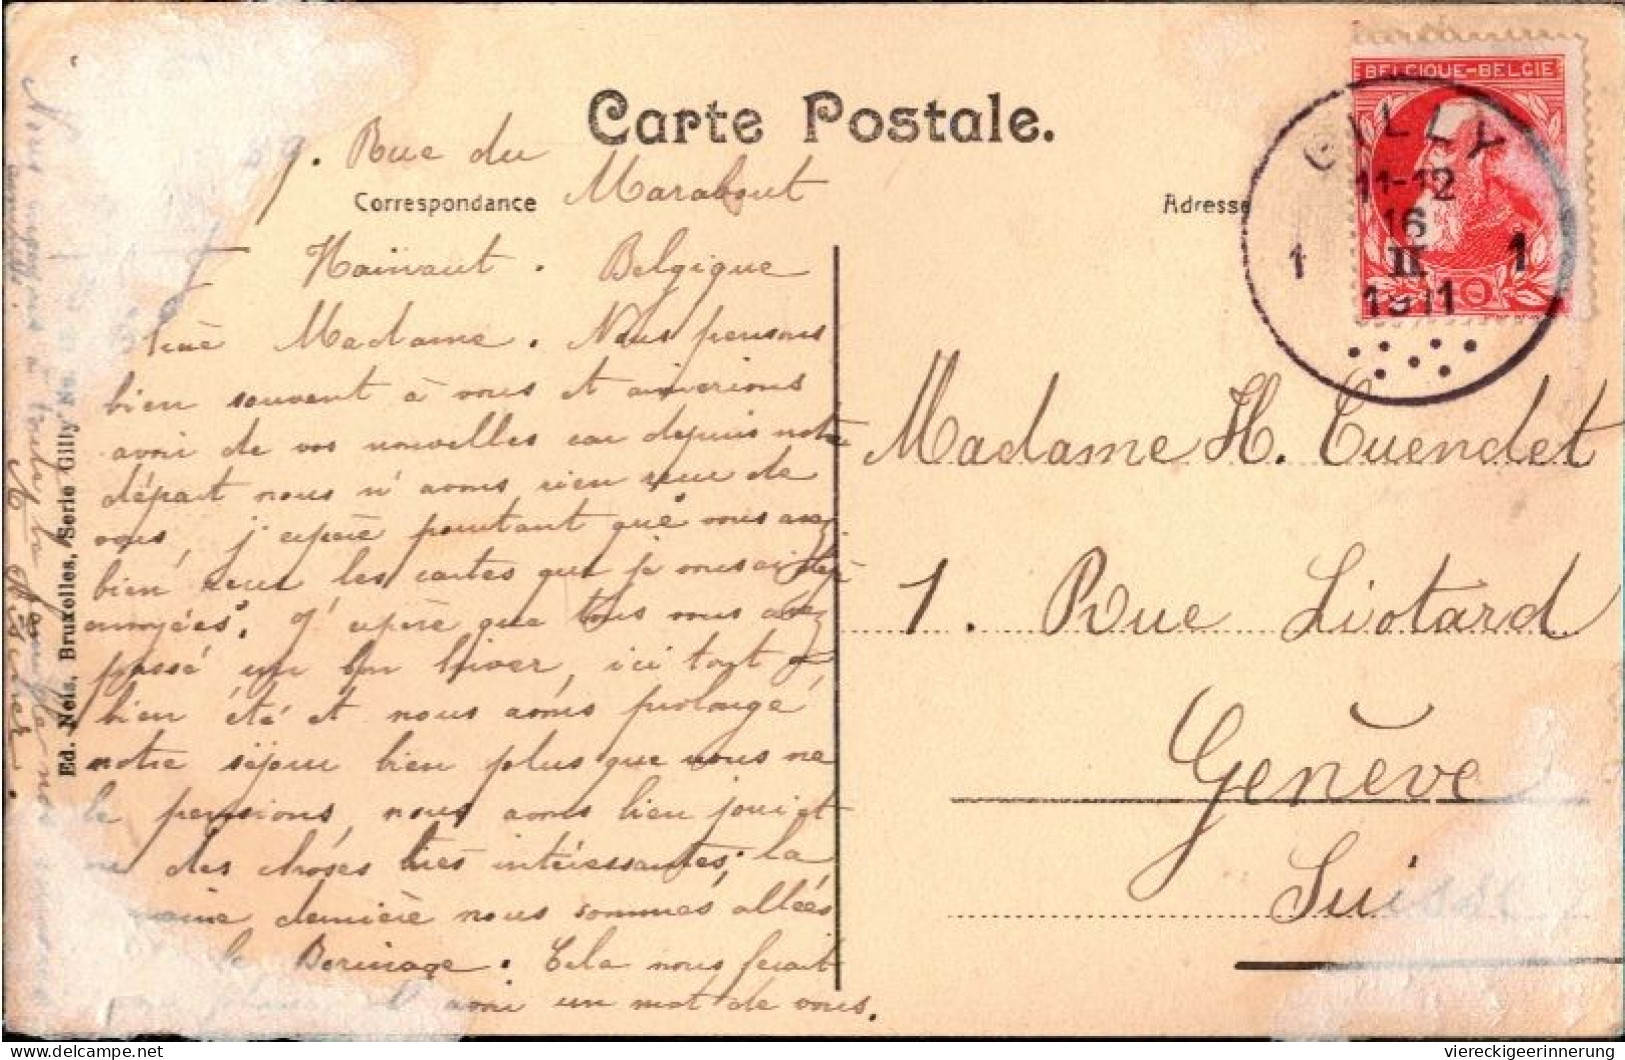 Carte Postale.
59. Rue du
Correspondance
Marabout
Adresse
Hainaut. Belgique
BELGIQUE-BELGIE
GILLY
11-12
16
1 II 1
1911
10
Madame. Nous pensons
bien souvent à vous et aimerions
avoir de vos nouvelles car depuis notre
départ nous n'avons rien reçu de
vous, j'espère pourtant que vous avez
bien reçu les cartes que je vous ai déjà
envoyées. J'espère que tous vous avez
passé un bon hiver, ici tout a
bien été et nous avons prolongé
notre séjour bien plus que nous ne
le pensions, nous avons bien joui et
des choses très intéressantes, la
dernière nous sommes allées
le Borinage. Cela nous ferait
avoir un mot de vous.
Nous à toute la famille nos
Ed. Nels, Bruxelles, Serie Gilly No.
Madame H. Cuendet
1. Rue Liotard
Genève
Suisse
viereckigeerinnerung
delcampe.net